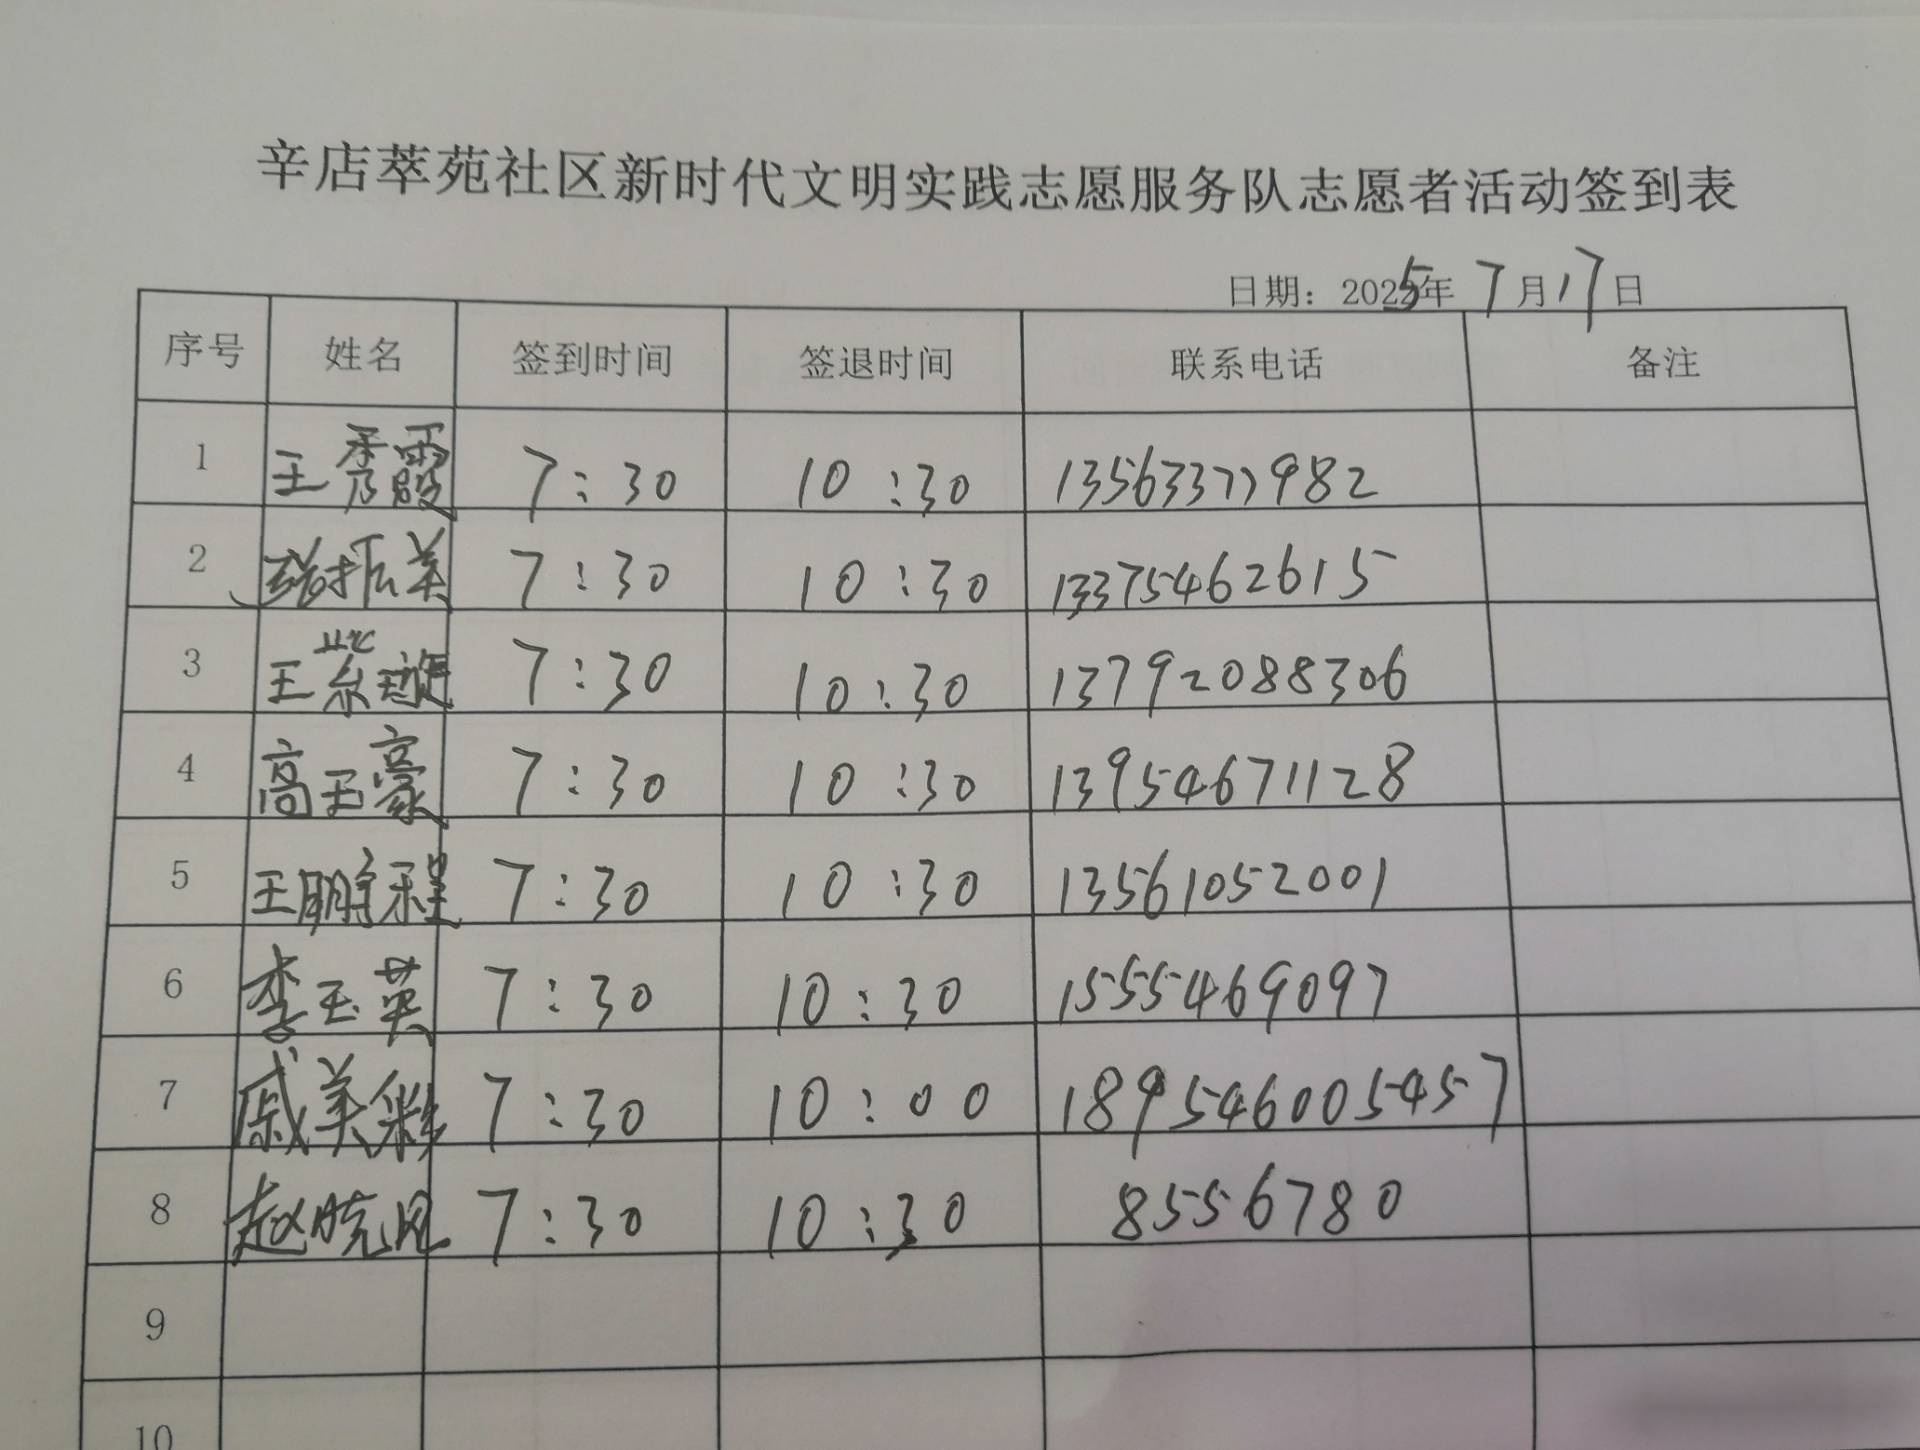 辛店萃苑社区新时代文明实践志愿服务队志愿者活动签到表
日期：2025年 7月17日
序号 姓名 签到时间 签退时间 联系电话 备注
1 王秀霞 7:30 10:30 13563377982
2 振美 7:30 10:30 13375462615
3 王紫璇 7:30 10:30 13792088306
4 高玉豪 7:30 10:30 13954671128
5 王鹏程 7:30 10:30 13561052001
6 李玉英 7:30 10:30 1555469097
7 戚美彩 7:30 10:00 189546005457
8 赵晓风 7:30 10:30 8556780
9
10